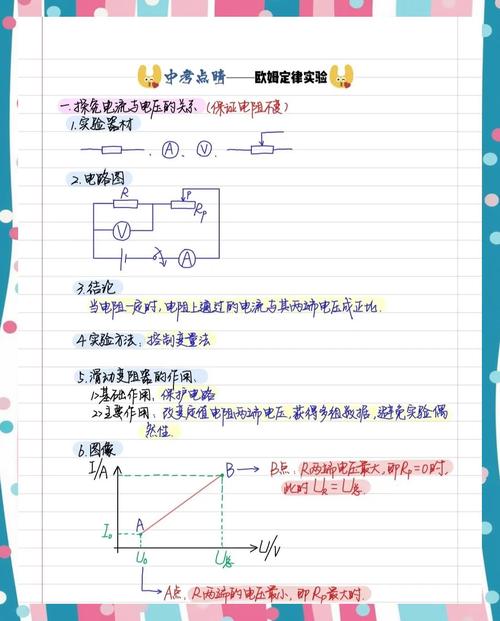 中考点睛——欧姆定律实验
一.探究电流与电压的关系(保证电阻不变)
1.实验器材
A V
2.电路图
R P
Rp
V
A
3.结论
当电阻一定时,电阻上通过的电流与其两端电压成正比.
4.实验方法:控制变量法
5.滑动变阻器的作用.
1>基础作用:保护电路
2>主要作用:改变定值电阻两端电压,获得多组数据,避免实验偶
然性.
6.图像
I/A
B → B点:R两端电压最大,即Rp=0时,
此时UR=U总
A
I₀
U₀ U总 U/V
A点:R两端的电压最小,即Rp最大时.